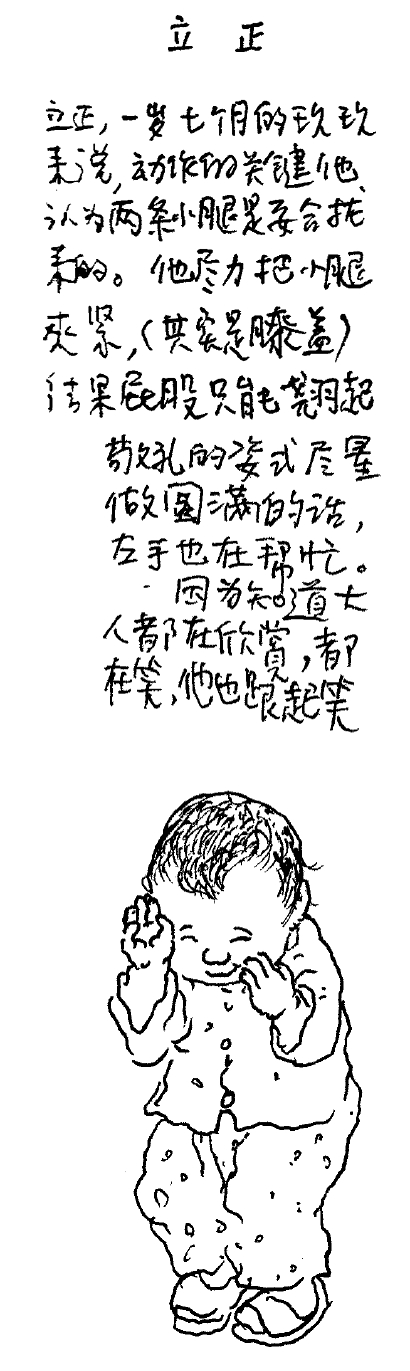 立正
立正，一岁七个月的玖玖
来说，动作的关键他
认为两条小腿是要合拢
来的。他尽力把小腿
夹紧，（其实是膝盖）
结果屁股只能翘起
敬礼的姿式尽量
做圆满的话，
左手也在帮忙。
因为知道大
人都在欣赏，都
在笑，他也跟起笑